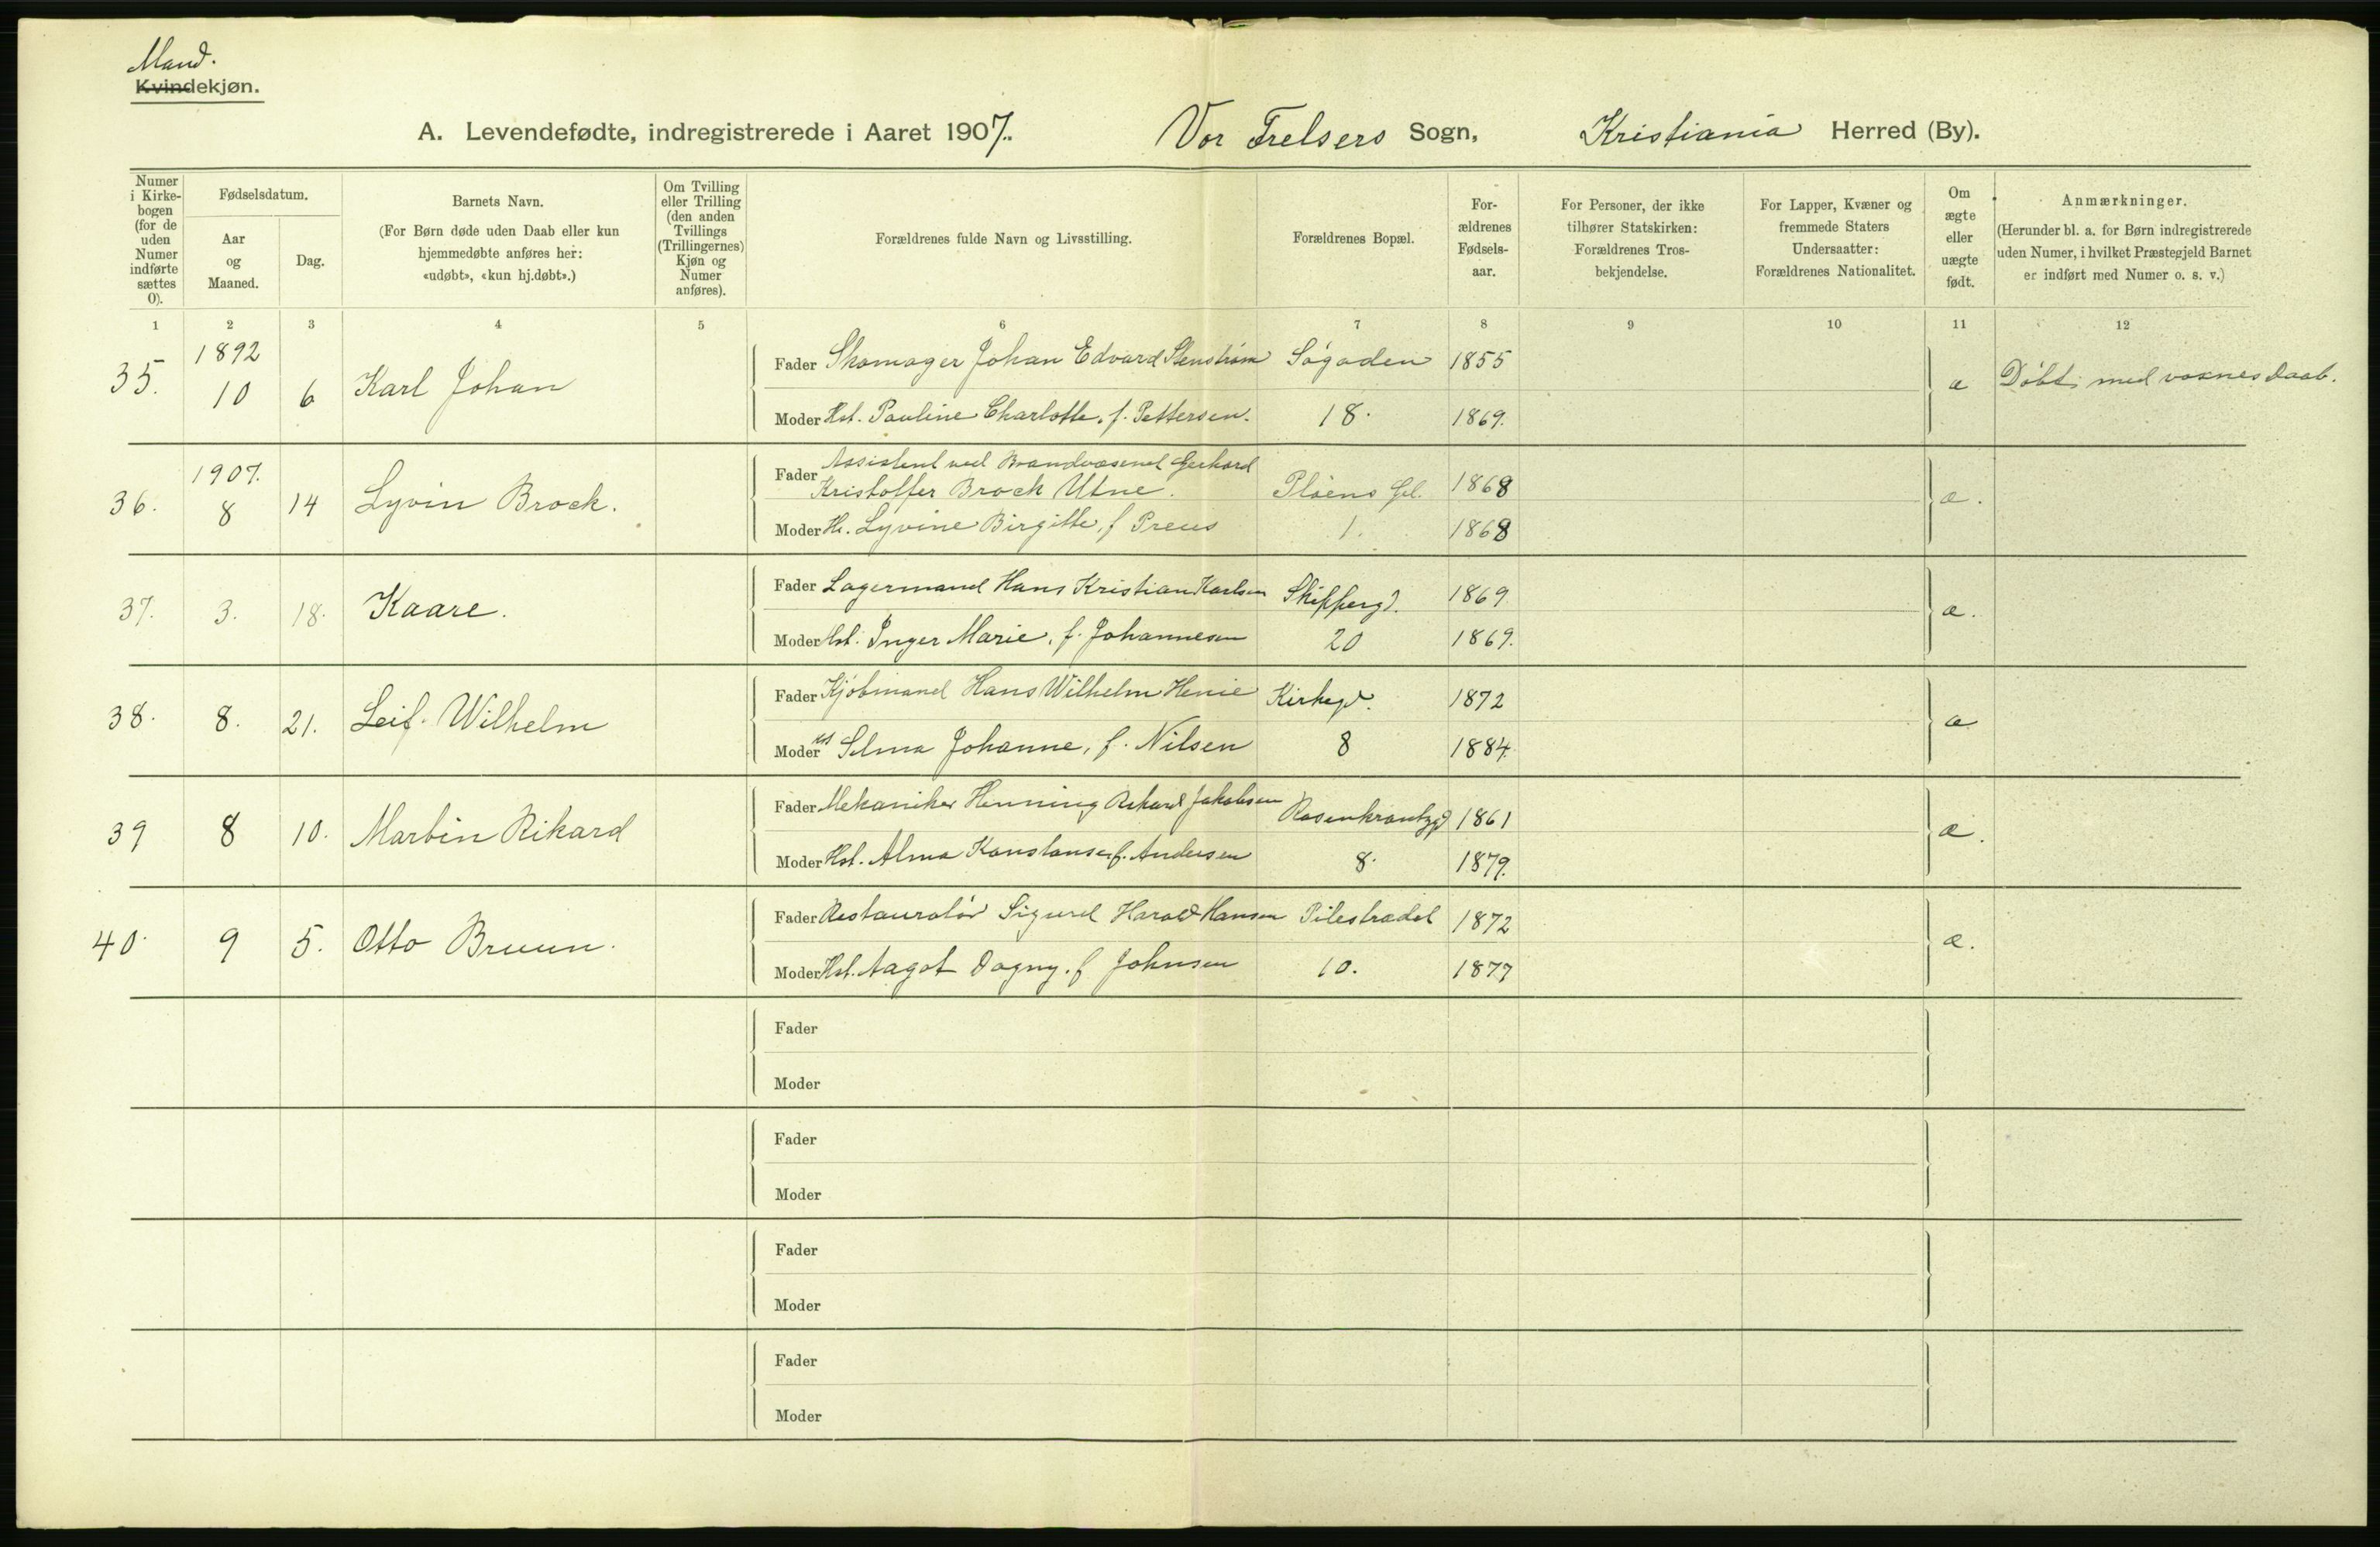 Mand.
Kvindekjøn.
A. Levendefødte, indregistrerede i Aaret 1907. Vor Frelsers Sogn, Kristiania Herred (By).
Numer i Kirkebogen (for de uden Numer indførte sættes 0).
Fødselsdatum.
Aar og Maaned.
Dag.
Barnets Navn.
(For Børn døde uden Daab eller kun hjemmedøbte anføres her: «udøbt», «kun hj.døbt».)
Om Tvilling eller Trilling (den anden Tvillings (Trillingernes) Kjøn og Numer anføres).
Forældrenes fulde Navn og Livsstilling.
Forældrenes Bopæl.
Forældrenes Fødselsaar.
For Personer, der ikke tilhører Statskirken: Forældrenes Trosbekjendelse.
For Lapper, Kvæner og fremmede Staters Undersaatter: Forældrenes Nationalitet.
Om ægte eller uægte født.
Anmærkninger.
(Herunder bl. a. for Børn indregistrerede uden Numer, i hvilket Præstegjeld Barnet er indført med Numer o. s. v.)
1 2 3 4 5 6 7 8 9 10 11 12
35. 1892 10 6 Karl Johan
Fader Skomager Johan Edvard Stenstrøm Søgaden 1855
Moder Hst. Pauline Charlotte, f. Pettersen. 18. 1869.
æ Døbt med voxnes Daab.
36. 1907. 8 14 Lyvin Brock.
Fader Assistent ved Brandvæsenet Gerhard
Kristoffer Brock Utne. Pløens Gd. 1868
Moder H. Lyvine Birgitte, f Preus 1. 1868
æ.
37. 3. 18. Kaare.
Fader Lagermand Hans Kristian Karlsen Skipperg. 1869
Moder Hst. Inger Marie, f. Johannesen 20 1869.
æ.
38. 8. 21. Leif Wilhelm
Fader Kjøbmand Hans Wilhelm Henie Kirkegd. 1872
Moder Selma Johanne, f. Nilsen 8 1884.
æ
39 8 10. Marbin Rikard
Fader Mekaniker Henning Rikard Jakobsen Rosenkrantzgd 1861
Moder Hst. Alma Konstanse, f. Andersen 8. 1879.
æ.
40. 9 5. Otto Bruun.
Fader Restauratør Sigurd Harald Hansen Pilestrædet 1872
Moder Hst. Aagot Dagny, f Johnsen 10. 1877
æ.
Fader
Moder
Fader
Moder
Fader
Moder
Fader
Moder